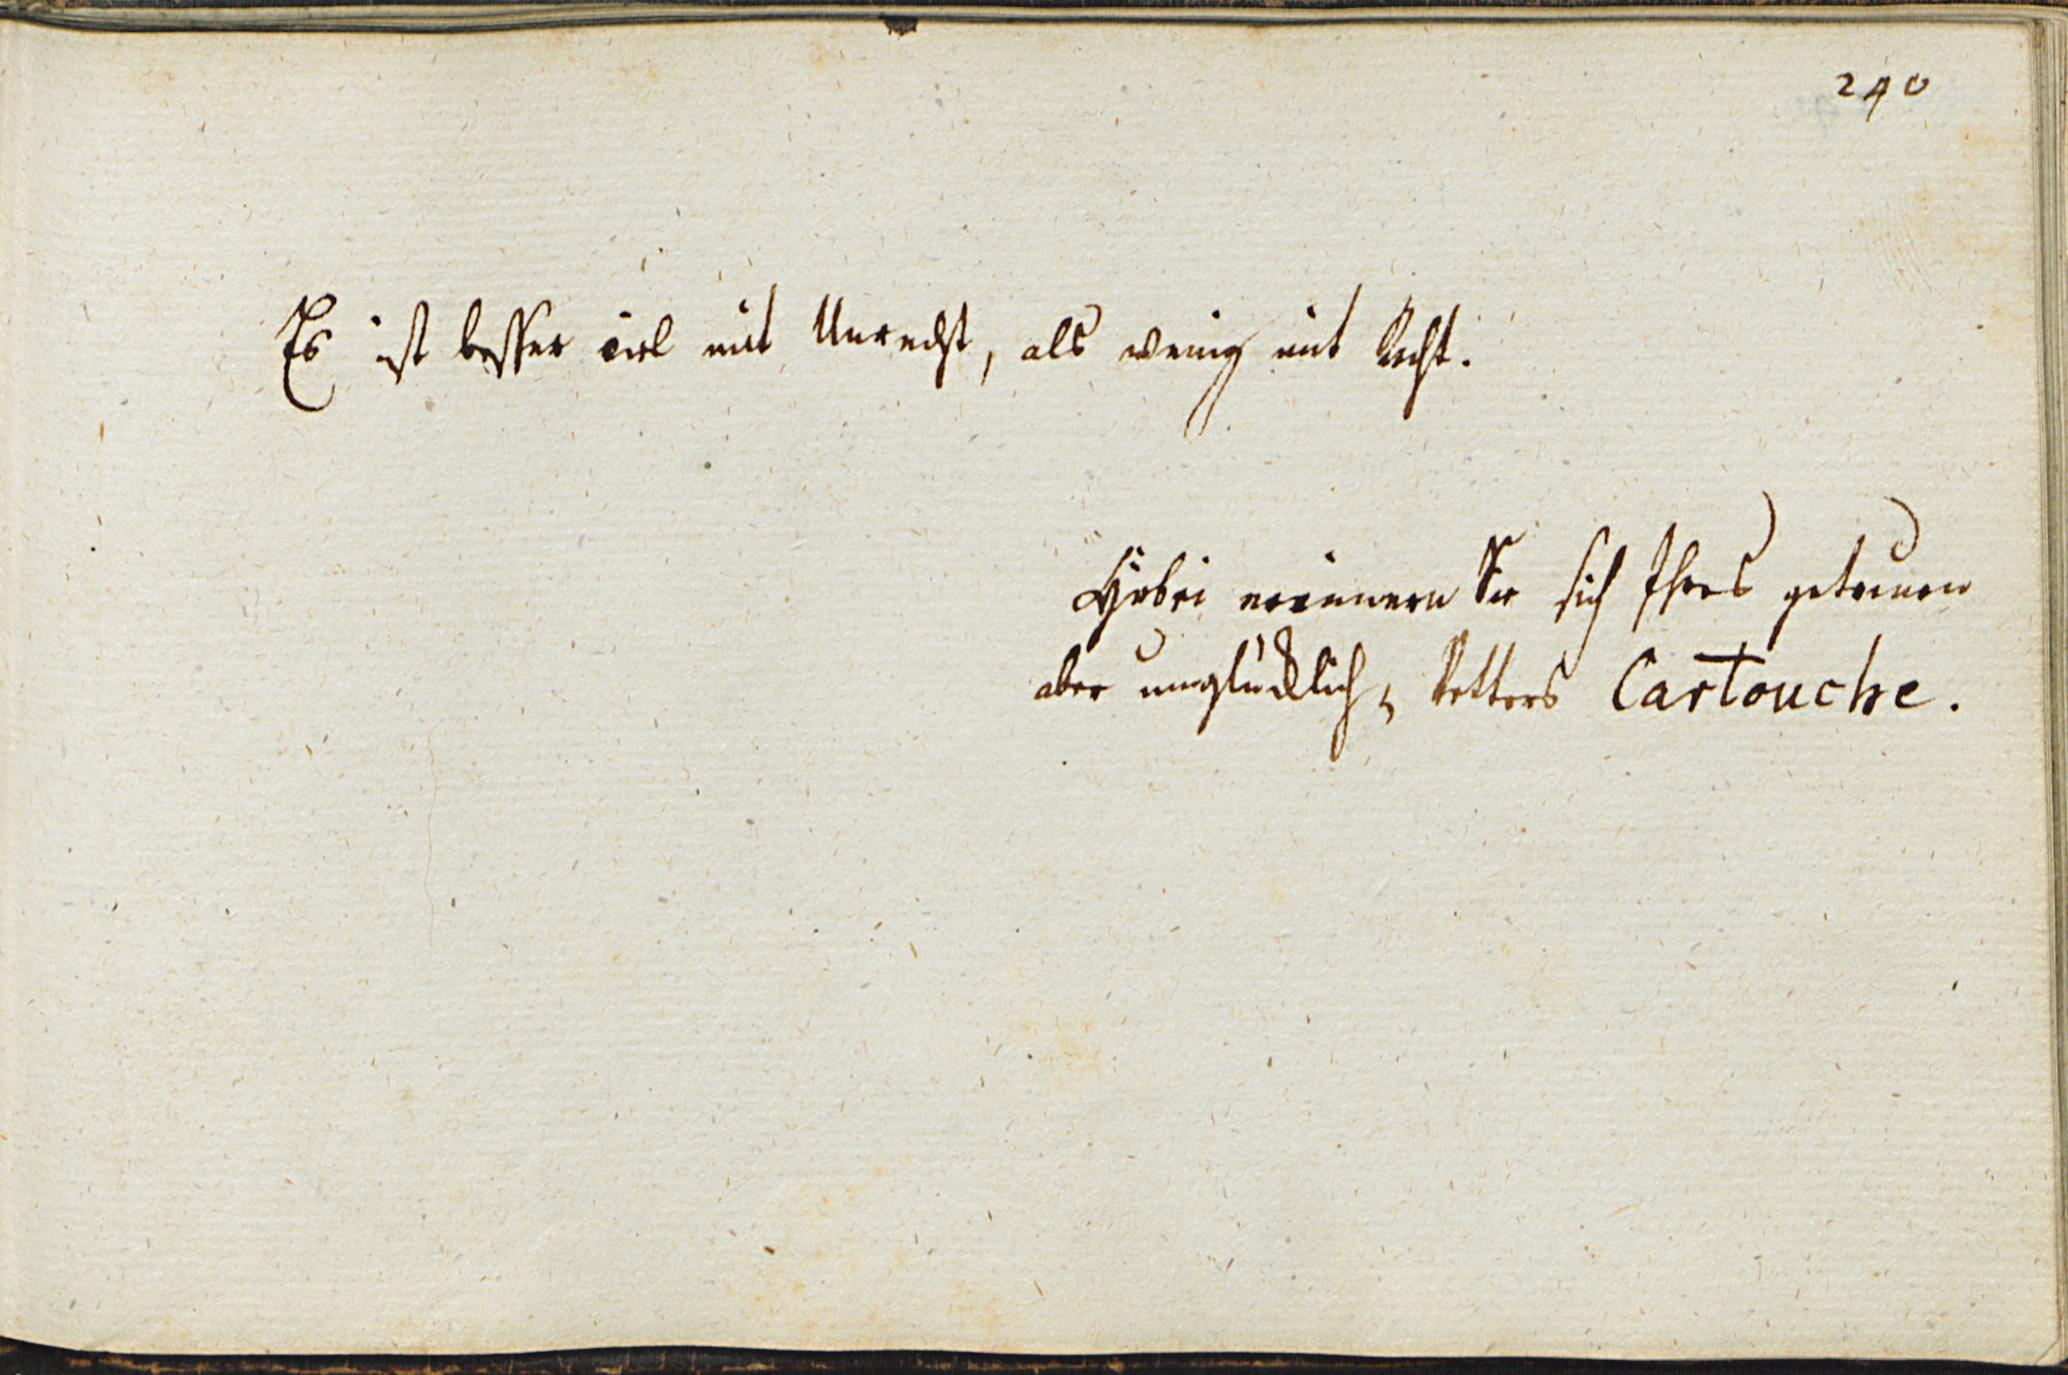 240
Es ist besser viel mit Unrecht, als wenig mit Recht.
Hiebei erinnern Sie sich Ihres getreuen
aber unglücklich, Vetters Cartouche.